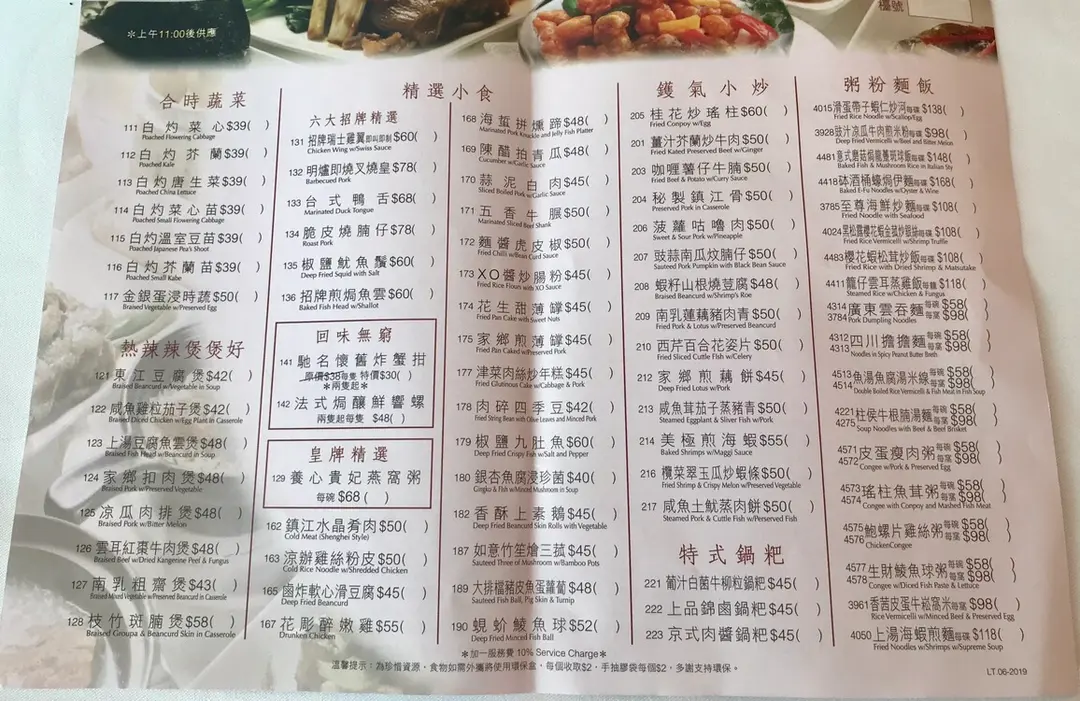 *上午11:00後供應
檯號
合時蔬菜
111 白灼菜心 $39( )
Poached Flowering Cabbage
112 白灼芥蘭 $39( )
Poached Kale
113 白灼唐生菜 $39( )
Poached China Lettuce
114 白灼菜心苗 $39( )
Poached Small Flowering Cabbage
115 白灼溫室豆苗 $39( )
Poached Japanese Pea's Shoot
116 白灼芥蘭苗 $39( )
Poached Small Kabe
117 金銀蛋浸時蔬 $50( )
Braised Vegetable w/Preserved Egg
熱辣辣煲煲好
121 東江豆腐煲 $42( )
Braised Beancurd w/Vegetable in Soup
122 咸魚雞粒茄子煲 $42( )
Braised Diced Chicken w/Egg Plant in Casserole
123 上湯豆腐魚雲煲 $48( )
Braised Fish Head w/Beancurd in Soup
124 家鄉扣肉煲 $48( )
Braised Pork w/Preserved Vegetable
125 涼瓜肉排煲 $48( )
Braised Pork w/Bitter Melon
126 雲耳紅棗牛肉煲 $48( )
Braised Beef w/Dried Kangerine Peel & Fungus
127 南乳粗齋煲 $43( )
Braised Mixed Vegetable w/Preserved Beancurd in Casserole
128 枝竹斑腩煲 $58( )
Braised Groupa & Beancurd Skin in Casserole
精選小食
六大招牌精選
131 招牌瑞士雞翼即叫即制 $60( )
Chicken Wing w/Swiss Sauce
132 明爐即燒叉燒皇 $78( )
Barbecued Pork
133 台式鴨舌 $68( )
Marinated Duck Tongue
134 脆皮燒腩仔 $78( )
Roast Pork
135 椒鹽魷魚鬚 $60( )
Deep Fried Squid with Salt
136 招牌煎焗魚雲 $60( )
Baked Fish Head w/Shallot
回味無窮
141 馳名懷舊炸蟹拑
原價$38每隻 特價$30( )
*兩隻起*
142 法式焗釀鮮響螺
兩隻起每隻 $48( )
皇牌精選
129 養心貴妃燕窩粥
每碗 $68 ( )
162 鎮江水晶肴肉 $50( )
Cold Meat (Shenghei Style)
163 涼辦雞絲粉皮 $50( )
Cold Rice Noodle w/Shredded Chicken
165 鹵炸軟心滑豆腐 $45( )
Deep Fried Beancurd
167 花彫醉嫩雞 $55( )
Drunken Chicken
168 海蜇拼燻蹄 $48( )
Marinated Pork Knuckle and Jelly Fish Platter
169 陳醋拍青瓜 $48( )
Cucumber w/Garlic Sauce
170 蒜泥白肉 $45( )
Sliced Boiled Pork w/Garlic Sauce
171 五香牛腒 $50( )
Marinated Sliced Beef Shank
172 麵醬虎皮椒 $50( )
Fried Chilli w/Bean Curd Sauce
173 XO醬炒腸粉 $45( )
Fried Rice Flours with XO Sauce
174 花生甜薄罉 $45( )
Fried Pan Cake with Sweet Nuts
175 家鄉煎薄罉 $45( )
Fried Pan Caked w/Preserved Pork
177 津菜肉絲炒年糕 $45( )
Fried Glutinous Cake w/Cabbage & Pork
178 肉碎四季豆 $42( )
Fried String Bean with Olive Leaves and Minced Pork
179 椒鹽九肚魚 $60( )
Deep Fried Crispy Fish w/Salt and Pepper
180 銀杏魚腐浸珍菌 $40( )
Gingko & Fish w/Minced Mushroom in Soup
182 香酥上素鵝 $45( )
Deep Fried Beancurd Skin Rolls with Vegetable
187 如意竹笙燴三菰 $45( )
Sauteed Three of Mushroom w/Bamboo Pots
189 大排檔豬皮魚蛋蘿蔔 $48( )
Sauteed Fish Ball, Pig Skin & Turnip
190 蜆蚧鯪魚球 $52( )
Deep Fried Minced Fish Ball
鑊氣小炒
205 桂花炒瑤柱 $60( )
Fried Conpoy w/Egg
201 薑汁芥蘭炒牛肉 $50( )
Fried Kated Preserved Beef w/Ginger
203 咖喱薯仔牛腩 $50( )
Fried Beef & Potato w/Curry Sauce
204 秘製鎮江骨 $50( )
Preserved Pork in Casserole
206 菠蘿咕嚕肉 $50( )
Sweet & Sour Pork w/Pineapple
207 豉蒜南瓜炆腩仔 $50( )
Sauteed Pork Pumpkin with Black Bean Sauce
208 蝦籽山根燒荳腐 $48( )
Braised Beancurd w/Shrimp's Roe
209 南乳蓮藕豬肉青 $50( )
Fried Pork & Lotus w/Preserved Beancurd
210 西芹百合花姿片 $50( )
Fried Sliced Cuttle Fish w/Celery
212 家鄉煎藕餅 $50( )
Deep Fried Lotus w/Pork
213 咸魚茸茄子蒸豬青 $50( )
Steamed Eggplant & Sliver Fish w/Pork
214 美極煎海蝦 $55( )
Baked Shrimps w/Maggi Sauce
216 欖菜翠玉瓜炒蝦條 $50( )
Fried Shrimp & Crispy Melon w/Preserved Vegetable
217 咸魚土魷蒸肉餅 $50( )
Steamed Pork & Cuttle Fish w/Perserved Fish
特式鍋粑
221 葡汁白菌牛柳粒鍋粑 $45( )
222 上品錦鹵鍋粑 $45( )
223 京式肉醬鍋粑 $45( )
粥粉麵飯
4015 滑蛋帶子蝦仁炒河每碟 $138( )
Fried Rice Noodle w/Scallop/Egg
3928 豉汁涼瓜牛肉煎米粉每碟 $98( )
Deep Fried Vermicelli w/Beef and Bitter Melon
4481 意式磨菇焗龍躉斑球飯每碟 $148( )
Baked Fish & Mushroom Rice in Italian Sty
4418 砵酒桶蠔焗伊麵每碟 $168( )
Baked E-Fu Noodles w/Oyster & Wine
3785 至尊海鮮炒麵每碟 $108( )
Fried Noodle with Seafood
4024 黑松露櫻花蝦金菰炒銀絲每碟 $108( )
Fried Rice Vermicelli w/Shrimp Truffle
4483 櫻花蝦松茸炒飯每碟 $108( )
Fried Rice with Dried Shrimp & Matsutake
4411 籠仔雲耳蒸雞飯每籠 $118( )
Steamed Rice w/Chicken & Fungus
4314 廣東雲吞麵 每碗 $58( )
3784 Pork Dumpling Noodles 每窩 $98( )
4312 四川擔擔麵 每碗 $58( )
4313 Noodles in Spicy Peanut Butter Breth 每窩 $98( )
4513 魚湯魚腐湯米線 每碗 $58( )
4514 Double Boiled Rice Vermicelli & Fish Meat in Fish Soup 每窩 $98( )
4221 柱侯牛根腩湯麵 每碗 $58( )
4275 Soup Noodles with Beef & Beef Brisket 每窩 $98( )
4571 皮蛋瘦肉粥 每碗 $58( )
4572 Congee w/Pork & Preserved Egg 每窩 $98( )
4573 瑤柱魚茸粥 每碗 $58( )
4574 Congee with Conpoy and Mashed Fish Meat 每窩 $98( )
4575 鮑螺片雞絲粥 每碗 $58( )
4576 Chicken Congee 每窩 $98( )
4577 生財鯪魚球粥 每碗 $58( )
4578 Congee w/Diced Fish Paste & Lettuce 每窩 $98( )
3961 香茜皮蛋牛崧窩米每窩 $98( )
Rice Vermicelli w/Minced Beef & Preserved Egg
4050 上湯海蝦煎麵每碟 $118( )
Fried Noodles w/Shrimps w/Supreme Soup
*加一服務費 10% Service Charge*
溫馨提示：為珍惜資源，食物如需外攜將使用環保盒，每個收取$2，手抽膠袋每個$2，多謝支持環保。
LT.06-2019